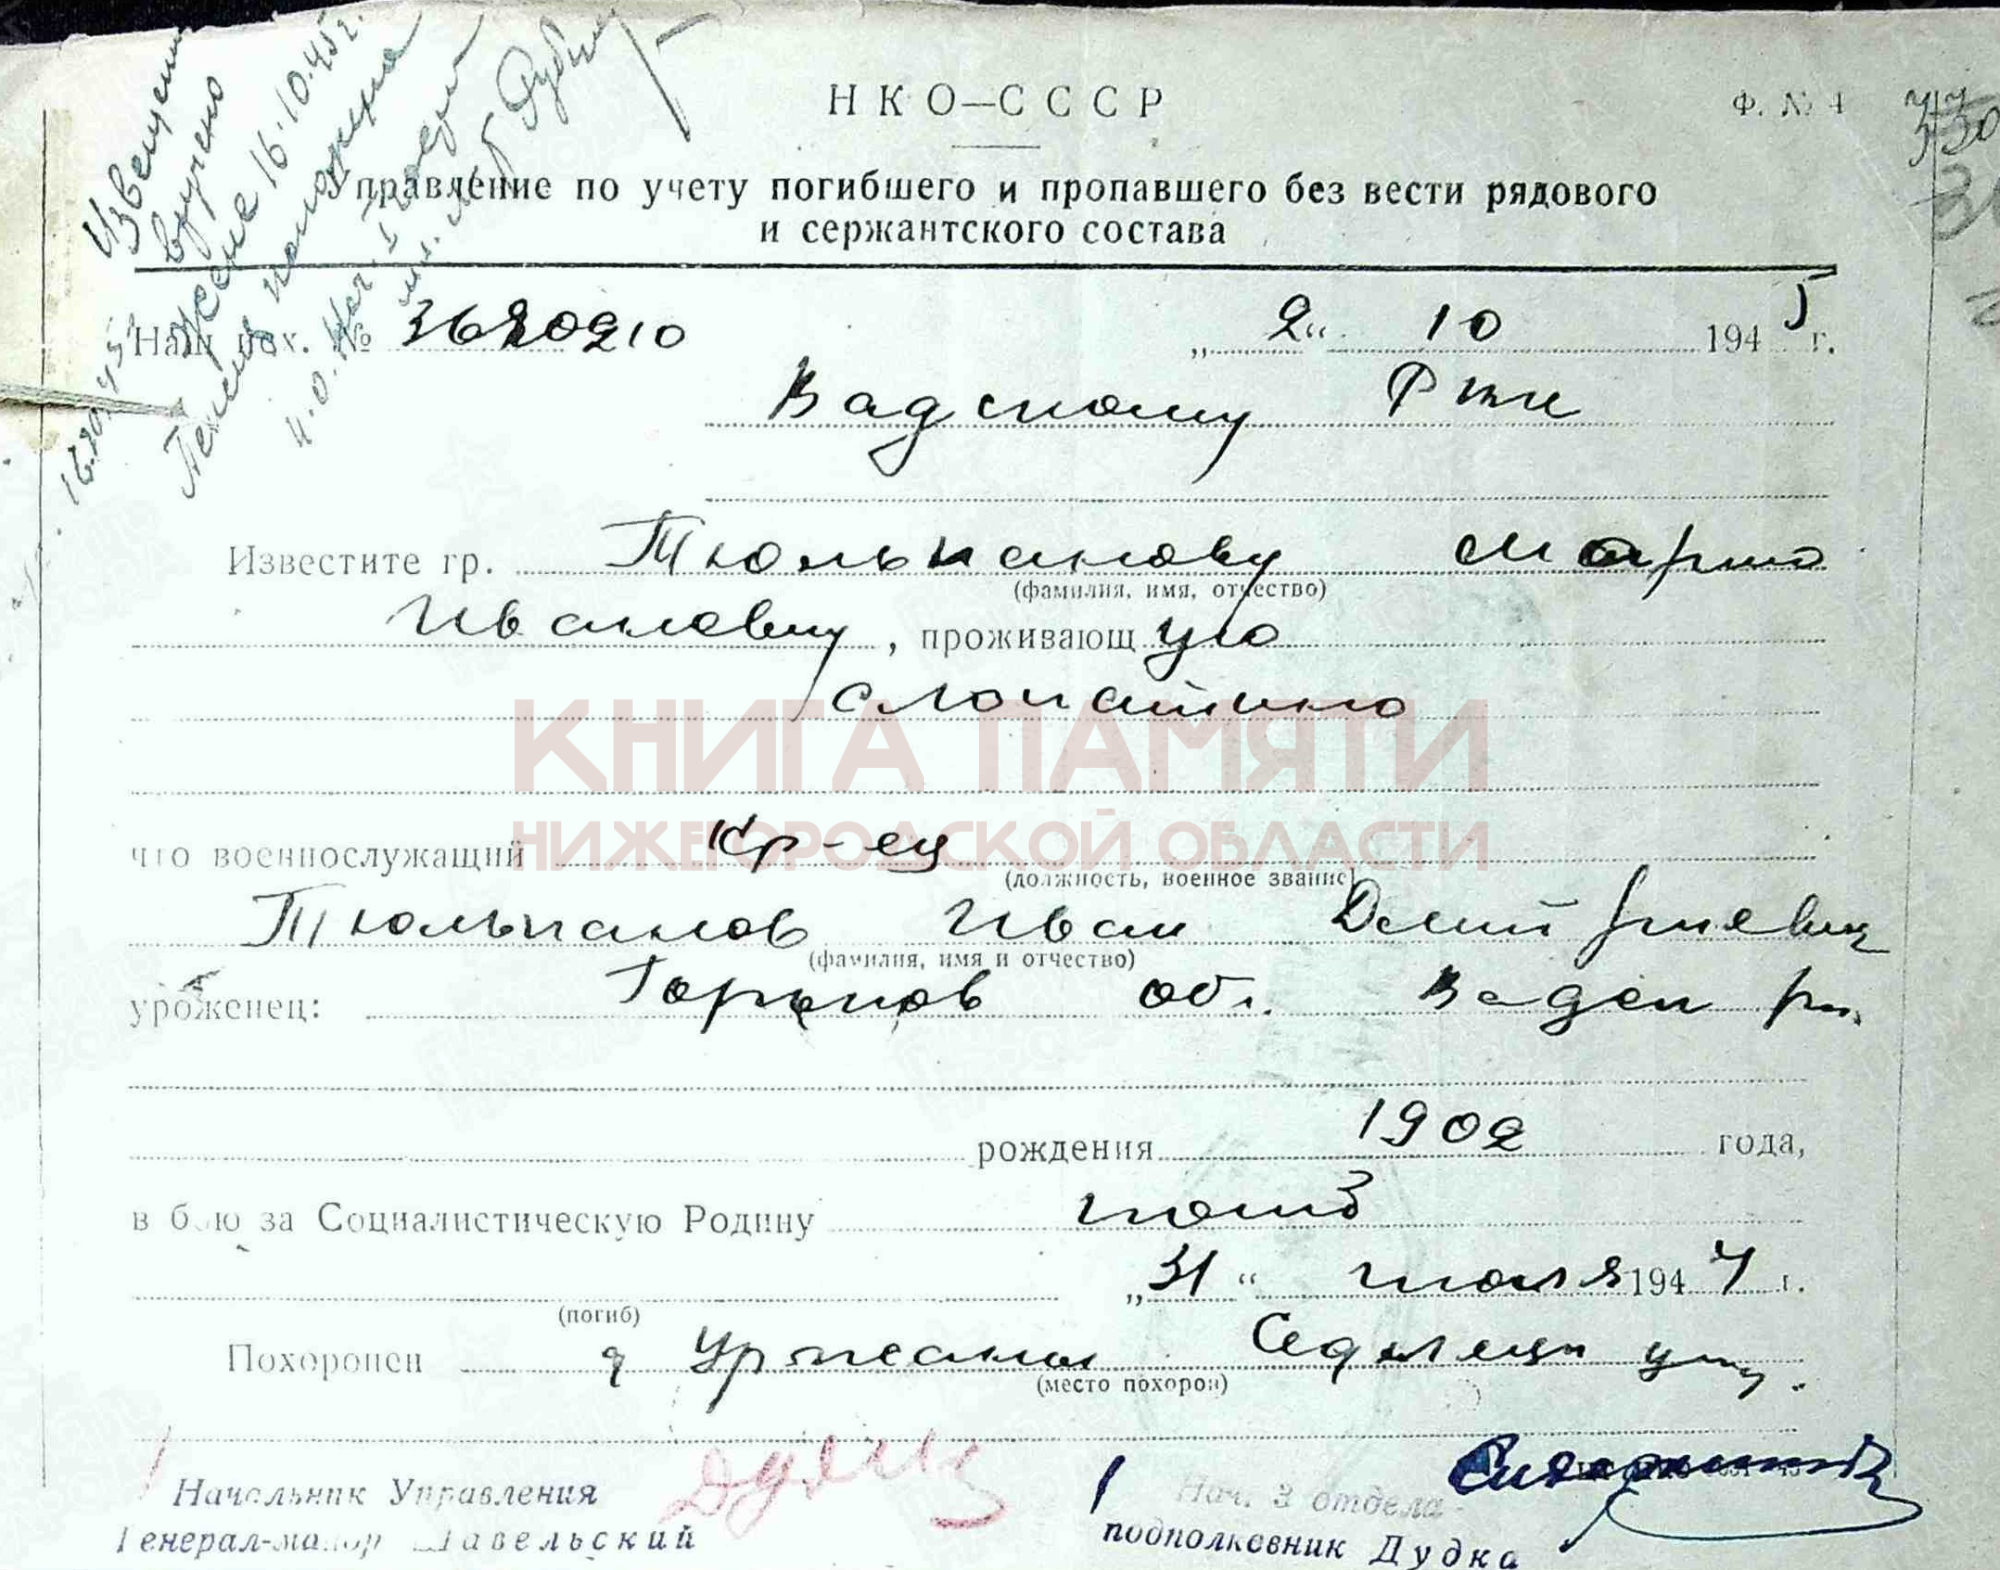 Извещение
вручено
жене 16.10.45г.
Пенсия
И.О. Нач. 1 части
мл. л-т
НКО—СССР
Ф. № 4
Управление по учету погибшего и пропавшего без вести рядового
и сержантского состава
Наш исх. № „2“ 10 1945 г.
Вадскому РВК
Известите гр. Тюльпанову Марию
(фамилия, имя, отчество)
Ивановну, проживающую
с Лопатино
КНИГА ПАМЯТИ
НИЖЕГОРОДСКОЙ ОБЛАСТИ
что военнослужащий кр-ец
(должность, военное звание)
Тюльпанов Иван Дмитриевич
(фамилия, имя и отчество)
уроженец: Горьков обл. Вадск рн.
рождения 1902 года,
в бою за Социалистическую Родину погиб
„31“ июля 1944 г.
(погиб)
Похоронен д Уржаны Седлецк
(место похорон)
Начальник Управления
Генерал-майор Шавельский
Нач. 3 отдела
подполковник Дудка